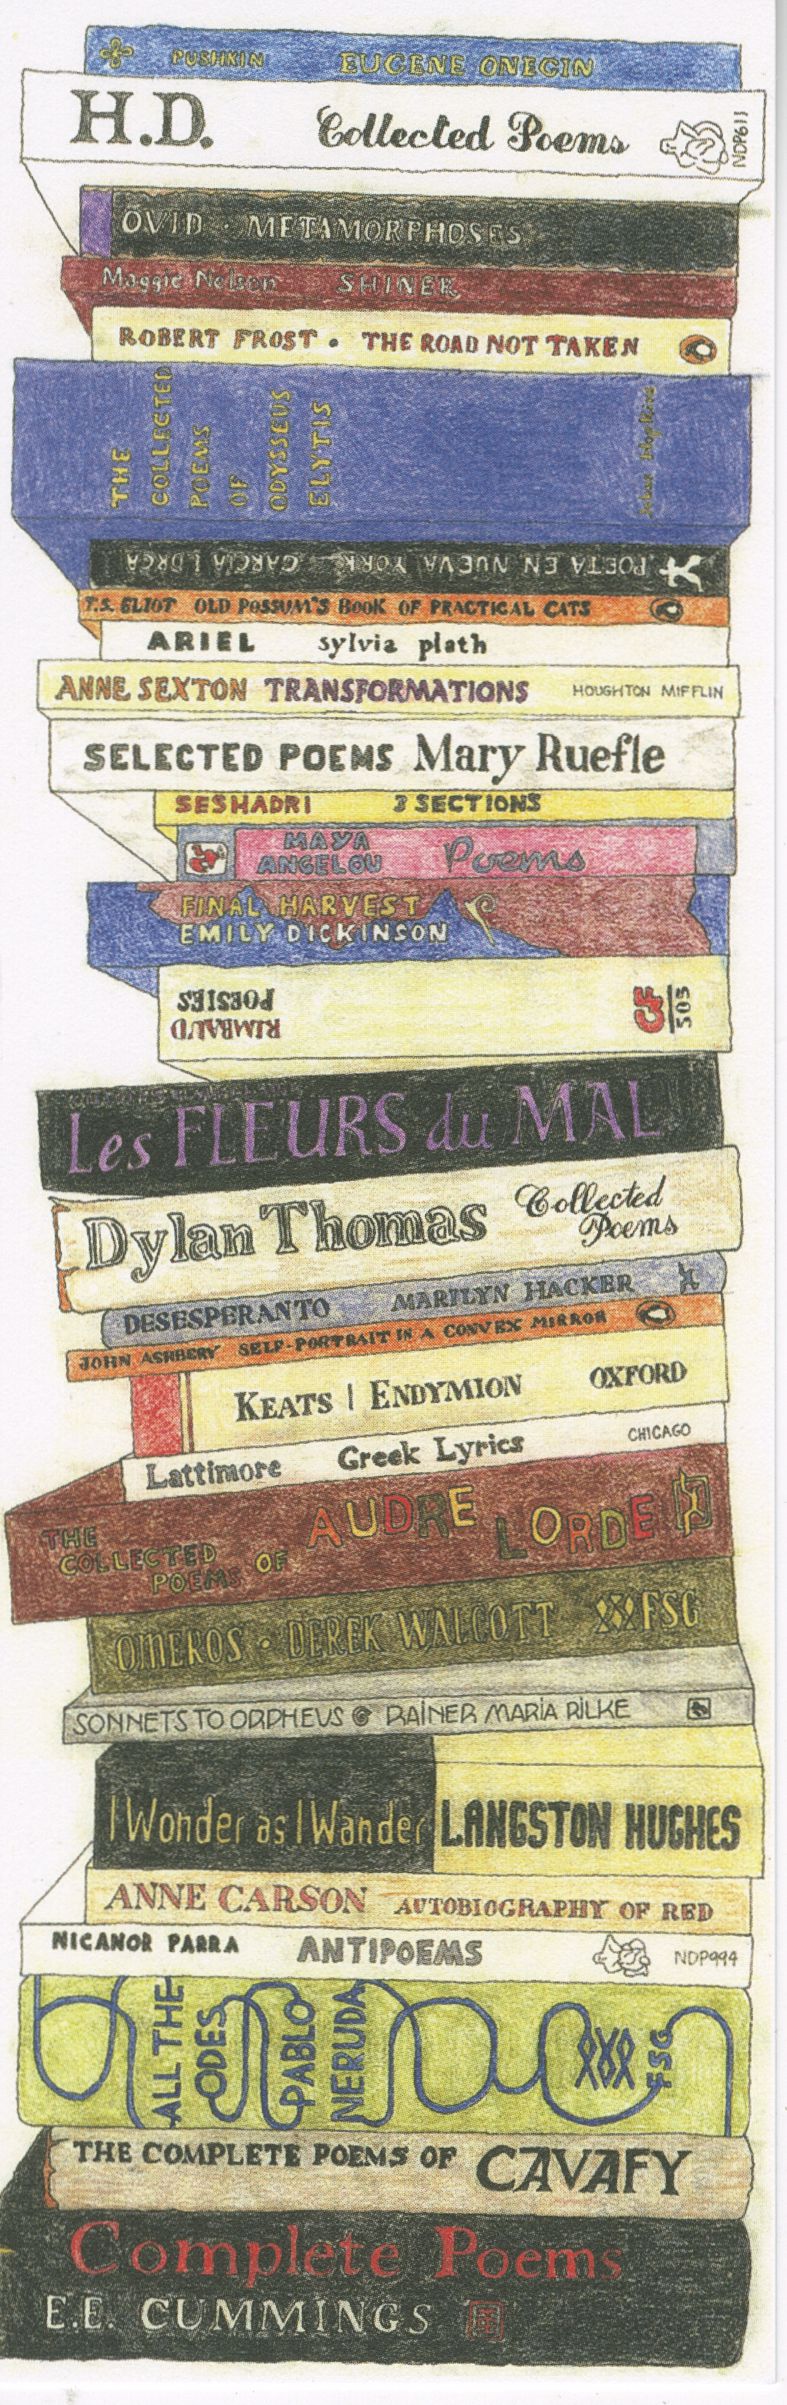 PUSHKIN EUGENE ONEGIN
H.D. Collected Poems NDP611
OVID · METAMORPHOSES
Maggie Nelson SHINER
ROBERT FROST • THE ROAD NOT TAKEN
THE
COLLECTED
POEMS
OF
ODYSSEUS
ELYTIS
Johns Hopkins
POETA EN NUEVA YORK GARCÍA LORCA
T.S. ELIOT OLD POSSUM'S BOOK OF PRACTICAL CATS
ARIEL sylvia plath
ANNE SEXTON TRANSFORMATIONS HOUGHTON MIFFLIN
SELECTED POEMS Mary Ruefle
SESHADRI 3 SECTIONS
MAYA
ANGELOU Poems
FINAL HARVEST
EMILY DICKINSON
RIMBAUD
POESIES
GF
505
Les FLEURS du MAL
Dylan Thomas Collected
Poems
DESESPERANTO MARILYN HACKER
JOHN ASHBERY SELF-PORTRAIT IN A CONVEX MIRROR
KEATS | ENDYMION OXFORD
Lattimore Greek Lyrics CHICAGO
THE
COLLECTED
POEMS OF AUDRE LORDE
OMEROS • DEREK WALCOTT FSG
SONNETS TO ORPHEUS @ RAINER MARIA RILKE
I Wonder as I Wander LANGSTON HUGHES
ANNE CARSON AUTOBIOGRAPHY OF RED
NICANOR PARRA ANTIPOEMS NDP994
ALL THE
ODES
PABLO
NERUDA
FSG
THE COMPLETE POEMS OF CAVAFY
Complete Poems
E.E. CUMMINGS